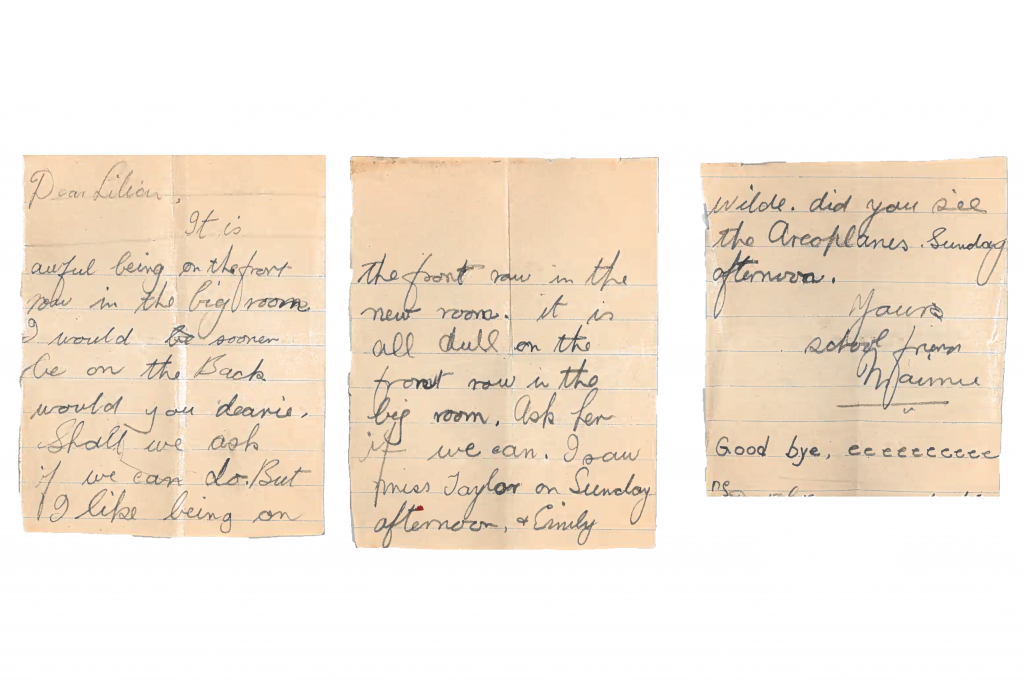 Dear Lilian,
It is
awful being on the front
row in the big room
I would be sooner
be on the Back
would you dearie.
Shall we ask
if we can do. But
I like being on
the front row in the
new room. it is
all dull on the
front row in the
big room. Ask her
if we can. I saw
miss Taylor on Sunday
afternoon, & Emily
wilde. did you see
the Areoplanes. Sunday
afternoon.
Yours
school friend
Maimie
Good bye, eeeeeeeeee